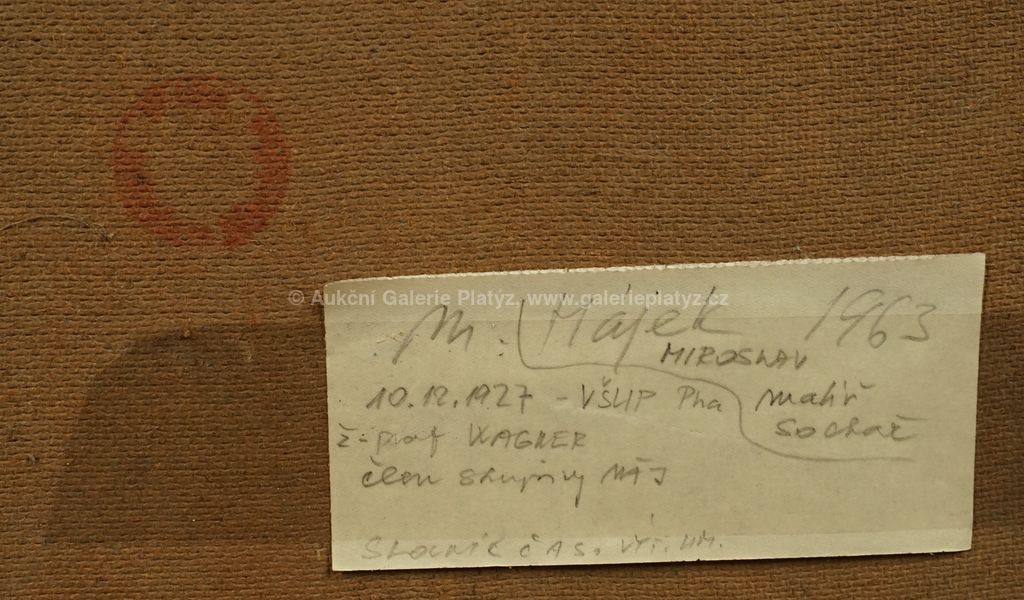 © Aukční Galerie Platýz, www.galerieplatyz.cz
M. Hájek 1963
MIROSLAV
10.12.1927 - VŠUP Pha malíř
sochař
ž: prof WAGNER
člen skupiny MÁJ
SLOVNÍK ČAS. VÝT. UM.